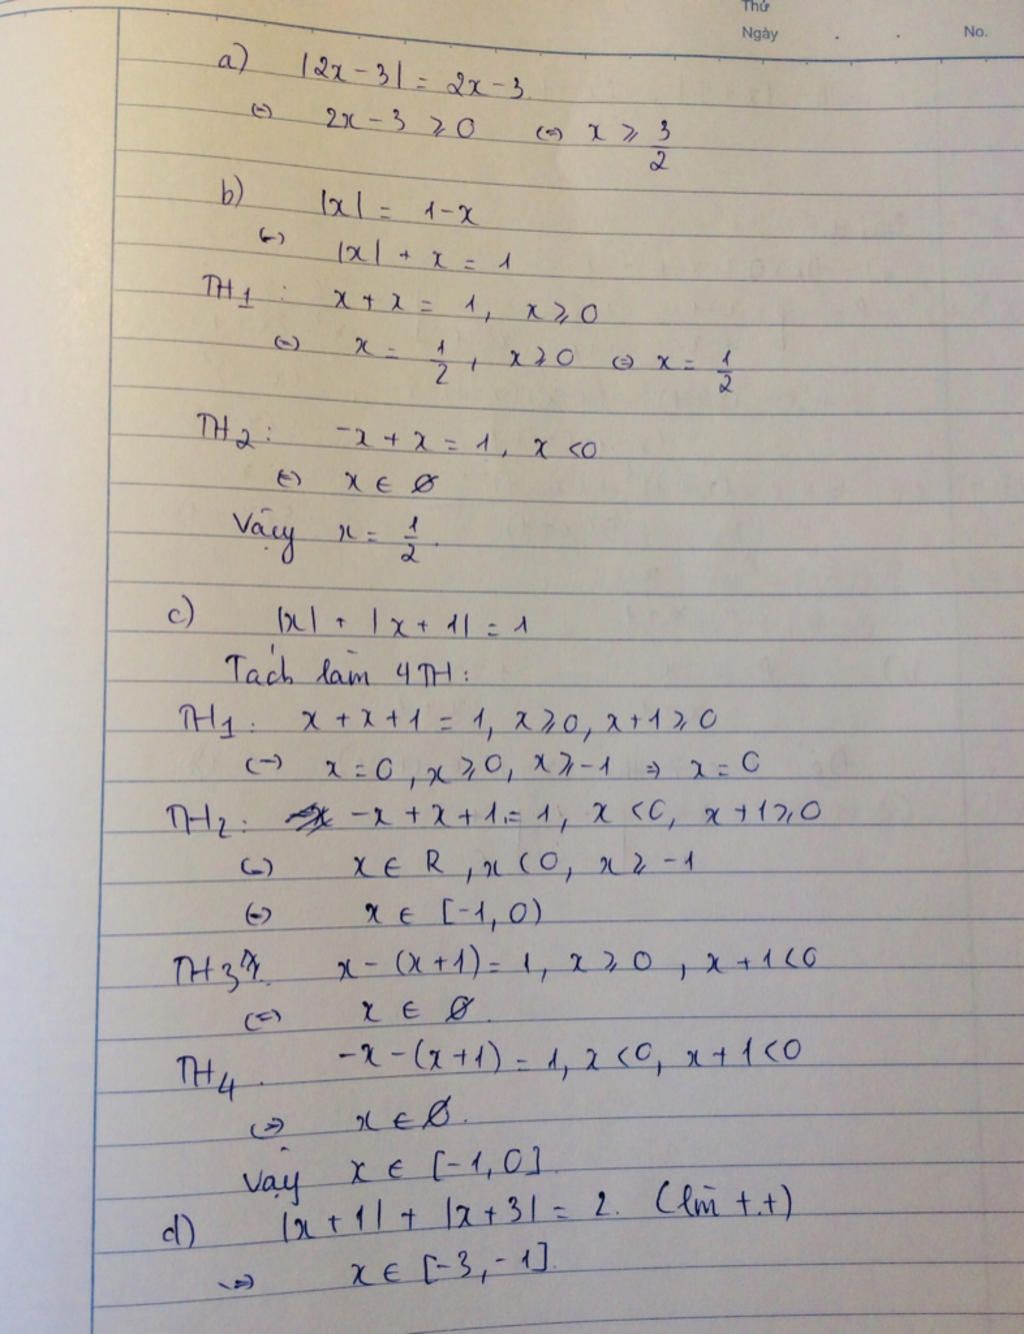 Thứ
Ngày . . No.
a) |2x - 3| = 2x - 3
(=) 2x - 3 ⩾ 0 (=) x ⩾ 3/2
b) |x| = 1 - x
(=) |x| + x = 1
TH1 : x + x = 1, x ⩾ 0
(=) x = 1/2, x ⩾ 0 (=) x = 1/2
TH2 : -x + x = 1, x < 0
(=) x ∈ ∅
Vậy x = 1/2.
c) |x| + |x + 1| = 1
Tách làm 4TH :
TH1 : x + x + 1 = 1, x ⩾ 0, x + 1 ⩾ 0
(=) x = 0, x ⩾ 0, x ⩾ -1 => x = 0
TH2 : -x + x + 1 = 1, x < 0, x + 1 ⩾ 0
(=) x ∈ R, x < 0, x ⩾ -1
(=) x ∈ [-1, 0)
TH3 x - (x + 1) = 1, x ⩾ 0, x + 1 < 0
(=) x ∈ ∅.
TH4. -x - (x + 1) = 1, x < 0, x + 1 < 0
(=) x ∈ ∅.
Vậy x ∈ [-1, 0].
d) |x + 1| + |x + 3| = 2. (làm t.t)
=> x ∈ [-3, -1].